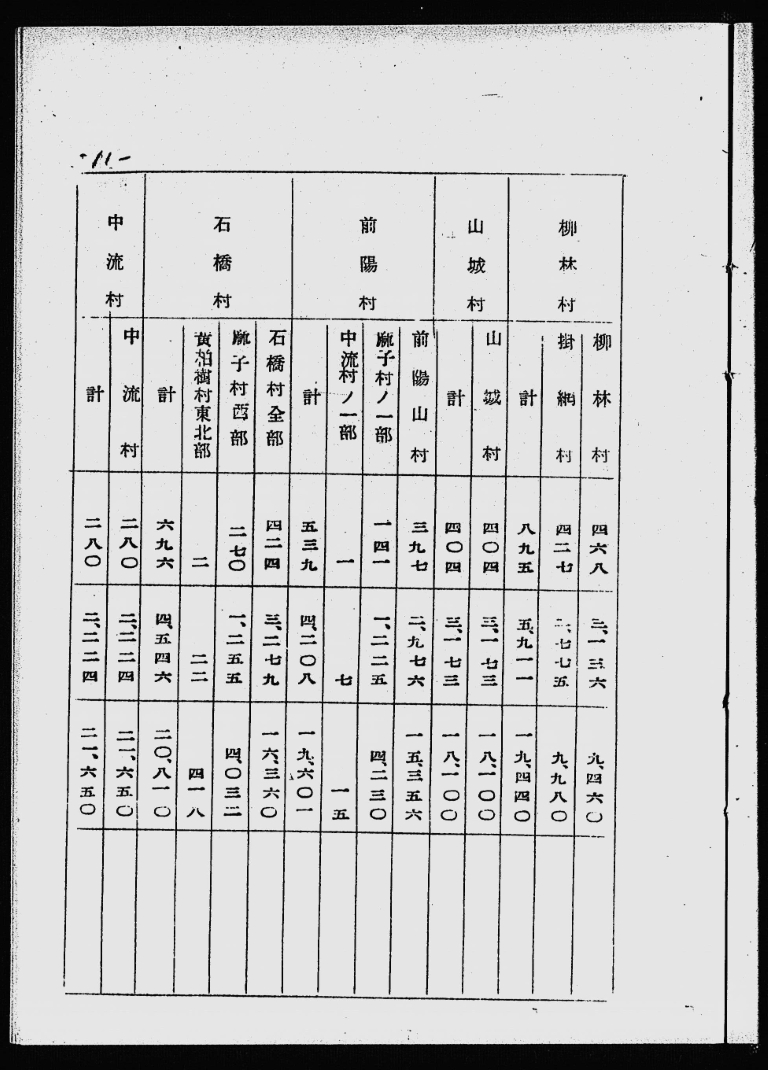 -11-
柳林村
柳林村 四六八 三、一三六 九、四六〇
掛網村 四二七 二、七七五 九、九八〇
計 八九五 五、九一一 一九、四四〇
山城村
山城村 四〇四 三、一七三 一八、一〇〇
計 四〇四 三、一七三 一八、一〇〇
前陽村
前陽山村 三九七 二、九七六 一五、三五六
廟子村ノ一部 一四一 一、二二五 四、二三〇
中流村ノ一部 一 七 一五
計 五三九 四、二〇八 一九、六〇一
石橋村
石橋村全部 四二四 三、二七九 一六、三六〇
廟子村西部 二七〇 一、二五五 四、〇三二
黄柏樹村東北部 二 二二 四一八
計 六九六 四、五四六 二〇、八一〇
中流村
中流村 二八〇 二、二二四 二一、六五〇
計 二八〇 二、二二四 二一、六五〇